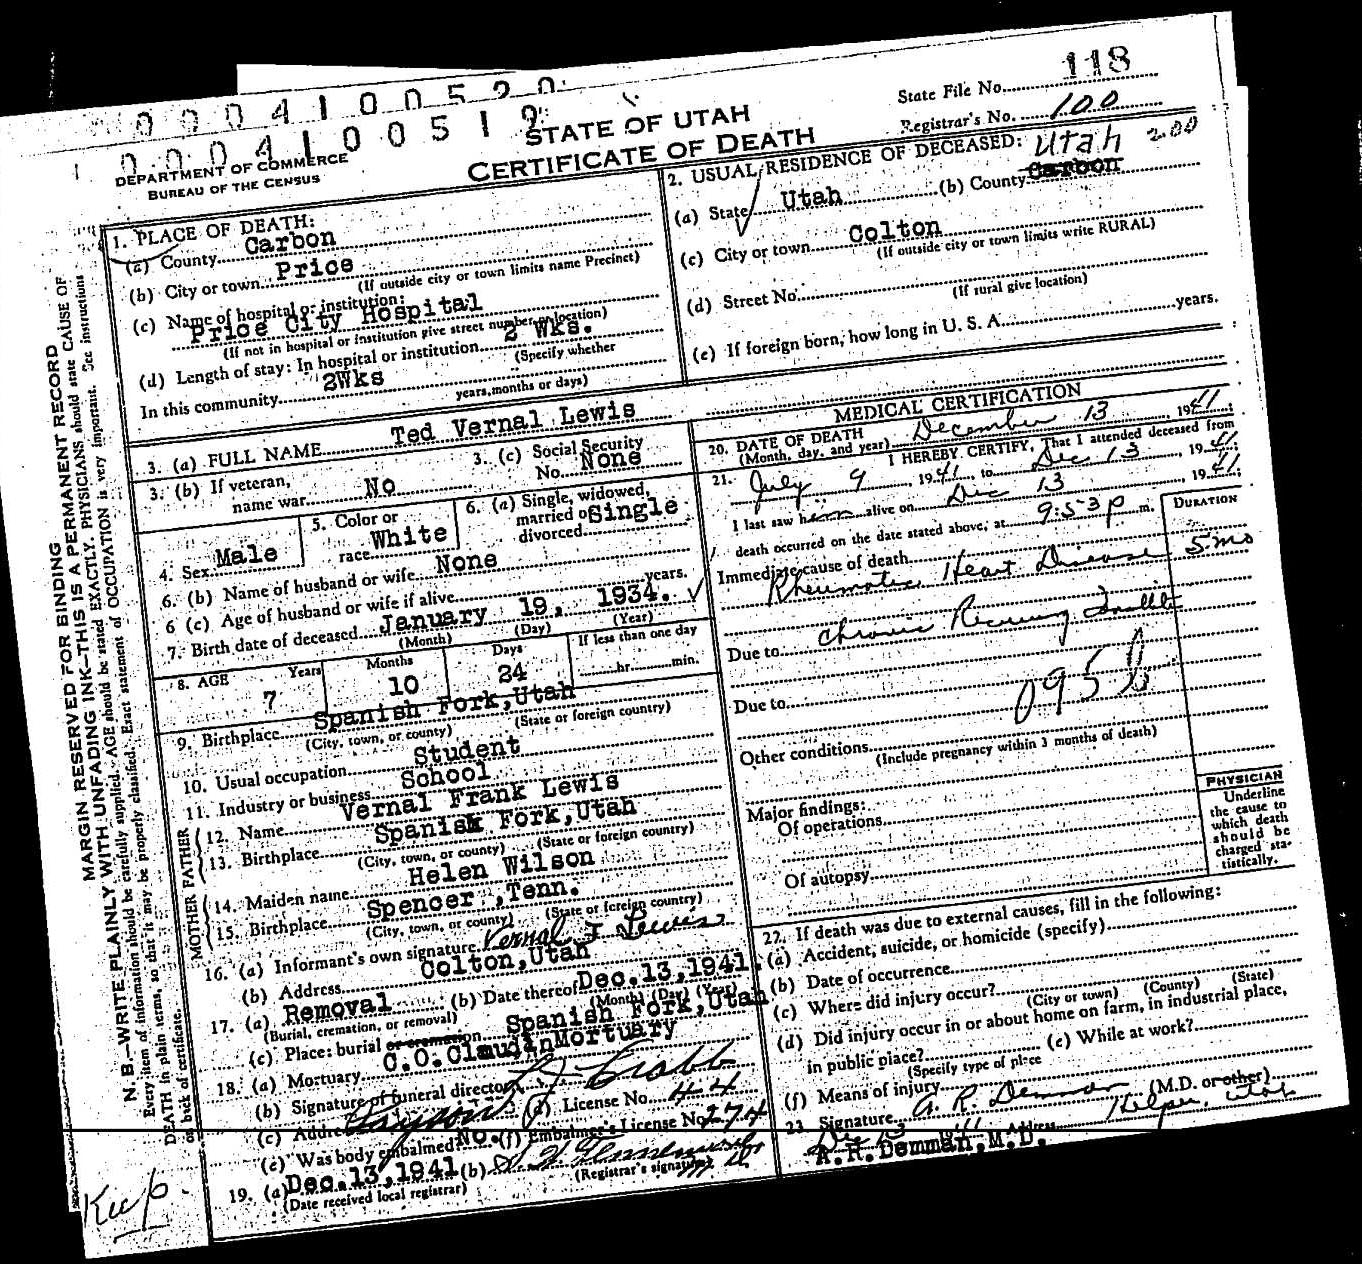 000410052
0004100519
118
State File No.
Registrar's No. 100
STATE OF UTAH
CERTIFICATE OF DEATH
DEPARTMENT OF COMMERCE
BUREAU OF THE CENSUS
1. PLACE OF DEATH:
(a) County Carbon
(b) City or town Price
(If outside city or town limits name Precinct)
(c) Name of hospital or institution:
Price City Hospital
(If not in hospital or institution give street number or location)
(d) Length of stay: In hospital or institution 2 Wks.
(Specify whether
In this community 2Wks
years, months or days)
2. USUAL RESIDENCE OF DECEASED: Utah 200
(a) State Utah (b) County Carbon
(c) City or town Colton
(If outside city or town limits write RURAL)
(d) Street No.
(If rural give location)
(e) If foreign born, how long in U. S. A. years.
3. (a) FULL NAME Ted Vernal Lewis
3. (b) If veteran,
name war No
3. (c) Social Security
No. None
4. Sex Male
5. Color or
race White
6. (a) Single, widowed,
married or Single
divorced
6. (b) Name of husband or wife None
6 (c) Age of husband or wife if alive years.
7. Birth date of deceased January 19, 1934.
(Month) (Day) (Year)
8. AGE Years Months Days If less than one day
7 10 24 hr. min.
9. Birthplace Spanish Fork, Utah
(City, town, or county) (State or foreign country)
10. Usual occupation Student
11. Industry or business School
FATHER
12. Name Vernal Frank Lewis
13. Birthplace Spanish Fork, Utah
(City, town, or county) (State or foreign country)
MOTHER
14. Maiden name Helen Wilson
15. Birthplace Spencer, Tenn.
(City, town, or county) (State or foreign country)
16. (a) Informant's own signature Vernal F Lewis
(b) Address Colton, Utah
17. (a) Removal (b) Date thereof Dec. 13, 1941.
(Burial, cremation, or removal) (Month) (Day) (Year)
(c) Place: burial or cremation Spanish Fork, Utah
18. (a) Mortuary C.O. Claudin Mortuary
(b) Signature of funeral director
(c) Address Payson (d) License No. 44
(e) Was body embalmed No. (f) Embalmer's License No. 274
19. (a) Dec. 13, 1941 (b)
(Date received local registrar) (Registrar's signature)
MEDICAL CERTIFICATION
20. DATE OF DEATH
(Month, day, and year) December 13, 1941;
21. I HEREBY CERTIFY, That I attended deceased from
July 9, 1941 to Dec 13, 1941
I last saw him alive on Dec 13, 1941;
death occurred on the date stated above, at 9:53 p m.
DURATION
Immediate cause of death
Rheumatic Heart Disease 5 mo
Due to Chronic Recurring
Due to
095b
Other conditions
(Include pregnancy within 3 months of death)
Major findings:
Of operations
Of autopsy
PHYSICIAN
Underline
the cause to
which death
should be
charged sta-
tistically.
22. If death was due to external causes, fill in the following:
(a) Accident, suicide, or homicide (specify)
(b) Date of occurrence
(c) Where did injury occur?
(City or town) (County) (State)
(d) Did injury occur in or about home on farm, in industrial place,
in public place? (e) While at work?
(Specify type of place
(f) Means of injury
23 Signature A. R. Demman (M.D. or other)
Dec 13 1941 Address Helper, Utah
A.R. Demman, M.D.
MARGIN RESERVED FOR BINDING
N. B.—WRITE PLAINLY WITH UNFADING INK—THIS IS A PERMANENT RECORD
Every item of information should be carefully supplied. AGE should be stated EXACTLY. PHYSICIANS should state CAUSE OF
DEATH in plain terms, so that it may be properly classified. Exact statement of OCCUPATION is very important. See instructions
on back of certificate.
Keep